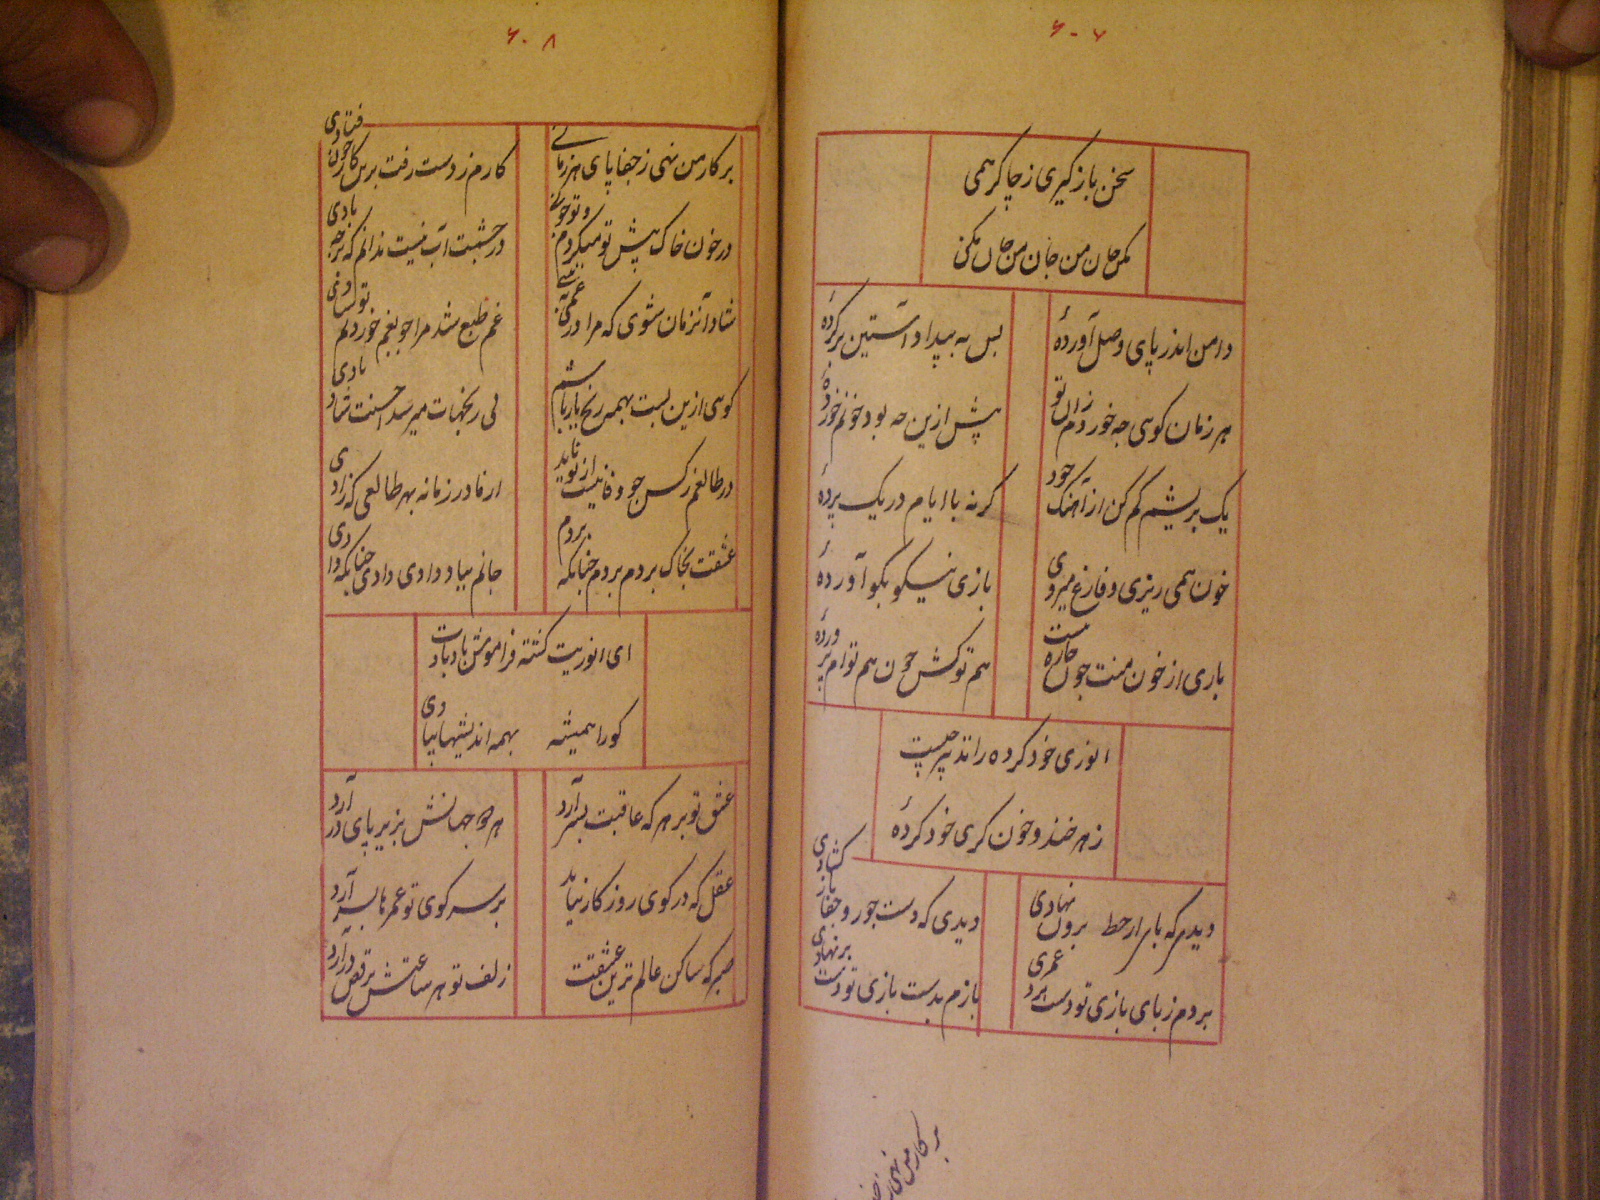 ۶۰۷
سخن بازگیری ز چاکر همی
مکن جان من جان من جان مکن
دامن اندر پای وصل آوردهٔ
بس به بیداد آستین بر کردهٔ
هر زمان کوی چه خوردم زان تو
پیش ازین چه بود خونم خوردهٔ
یک بریشم کم کن از آهنگ خود
گرنه با ایام در یک پردهٔ
خون همی ریزی و فارغ میروی
بازی نیکو بکو آوردهٔ
باری از خون منت چون چاره نیست
هم تو کش چون هم توام پروردهٔ
انوری خود کرده را تدبیر چیست
زهر خند و خون گری خود کردهٔ
دیدی که بار از خط برون نهادی
دیدی که دست جور و جفا باز کشادی
بردم ز پای بازی تو دست برد عمری
بازم بدست بازی تو دست بر نهادی
بر کار من نهی ز جفا
۶۰۸
بر کار من نهی ز جفا پای هر زمانی
کارم ز دست رفت برین کار چون فتادی
در خون خاک پیش تو میگردم و تو خونی
در چشمت آب نیست ندانم که بر چه بادی
شاد آنزمان شوی که مرا در غمی
غم طبع شد مرا چو بغم خوردنم تو شادی
کوی ازین بست بهمه رنج یار باشم
لی رنجهات میرسد احسنت شاد بادی
در طالعم ز کس چو وفا نیست از تو ناید
از مادر زمانه بهر طالعی که زادی
عشقت بخاک بردم بردم چنانکه بردم
جانم بباد دادی دادی چنانکه دادی
ای انوریت کشته فراموش یاد بادت
کو را همیشه بهمه اندیشها بیادی
عشق تو بر هر که عافیت بسر آرد
هر دو جهانش بزیر پای در آرد
عقل که در کوی روزگار نیاید
بر سر کوی تو عمرها بسر آرد
صبر که ساکن عالم ترین عشقت
زلف تو هر ساعتش برقص در آرد